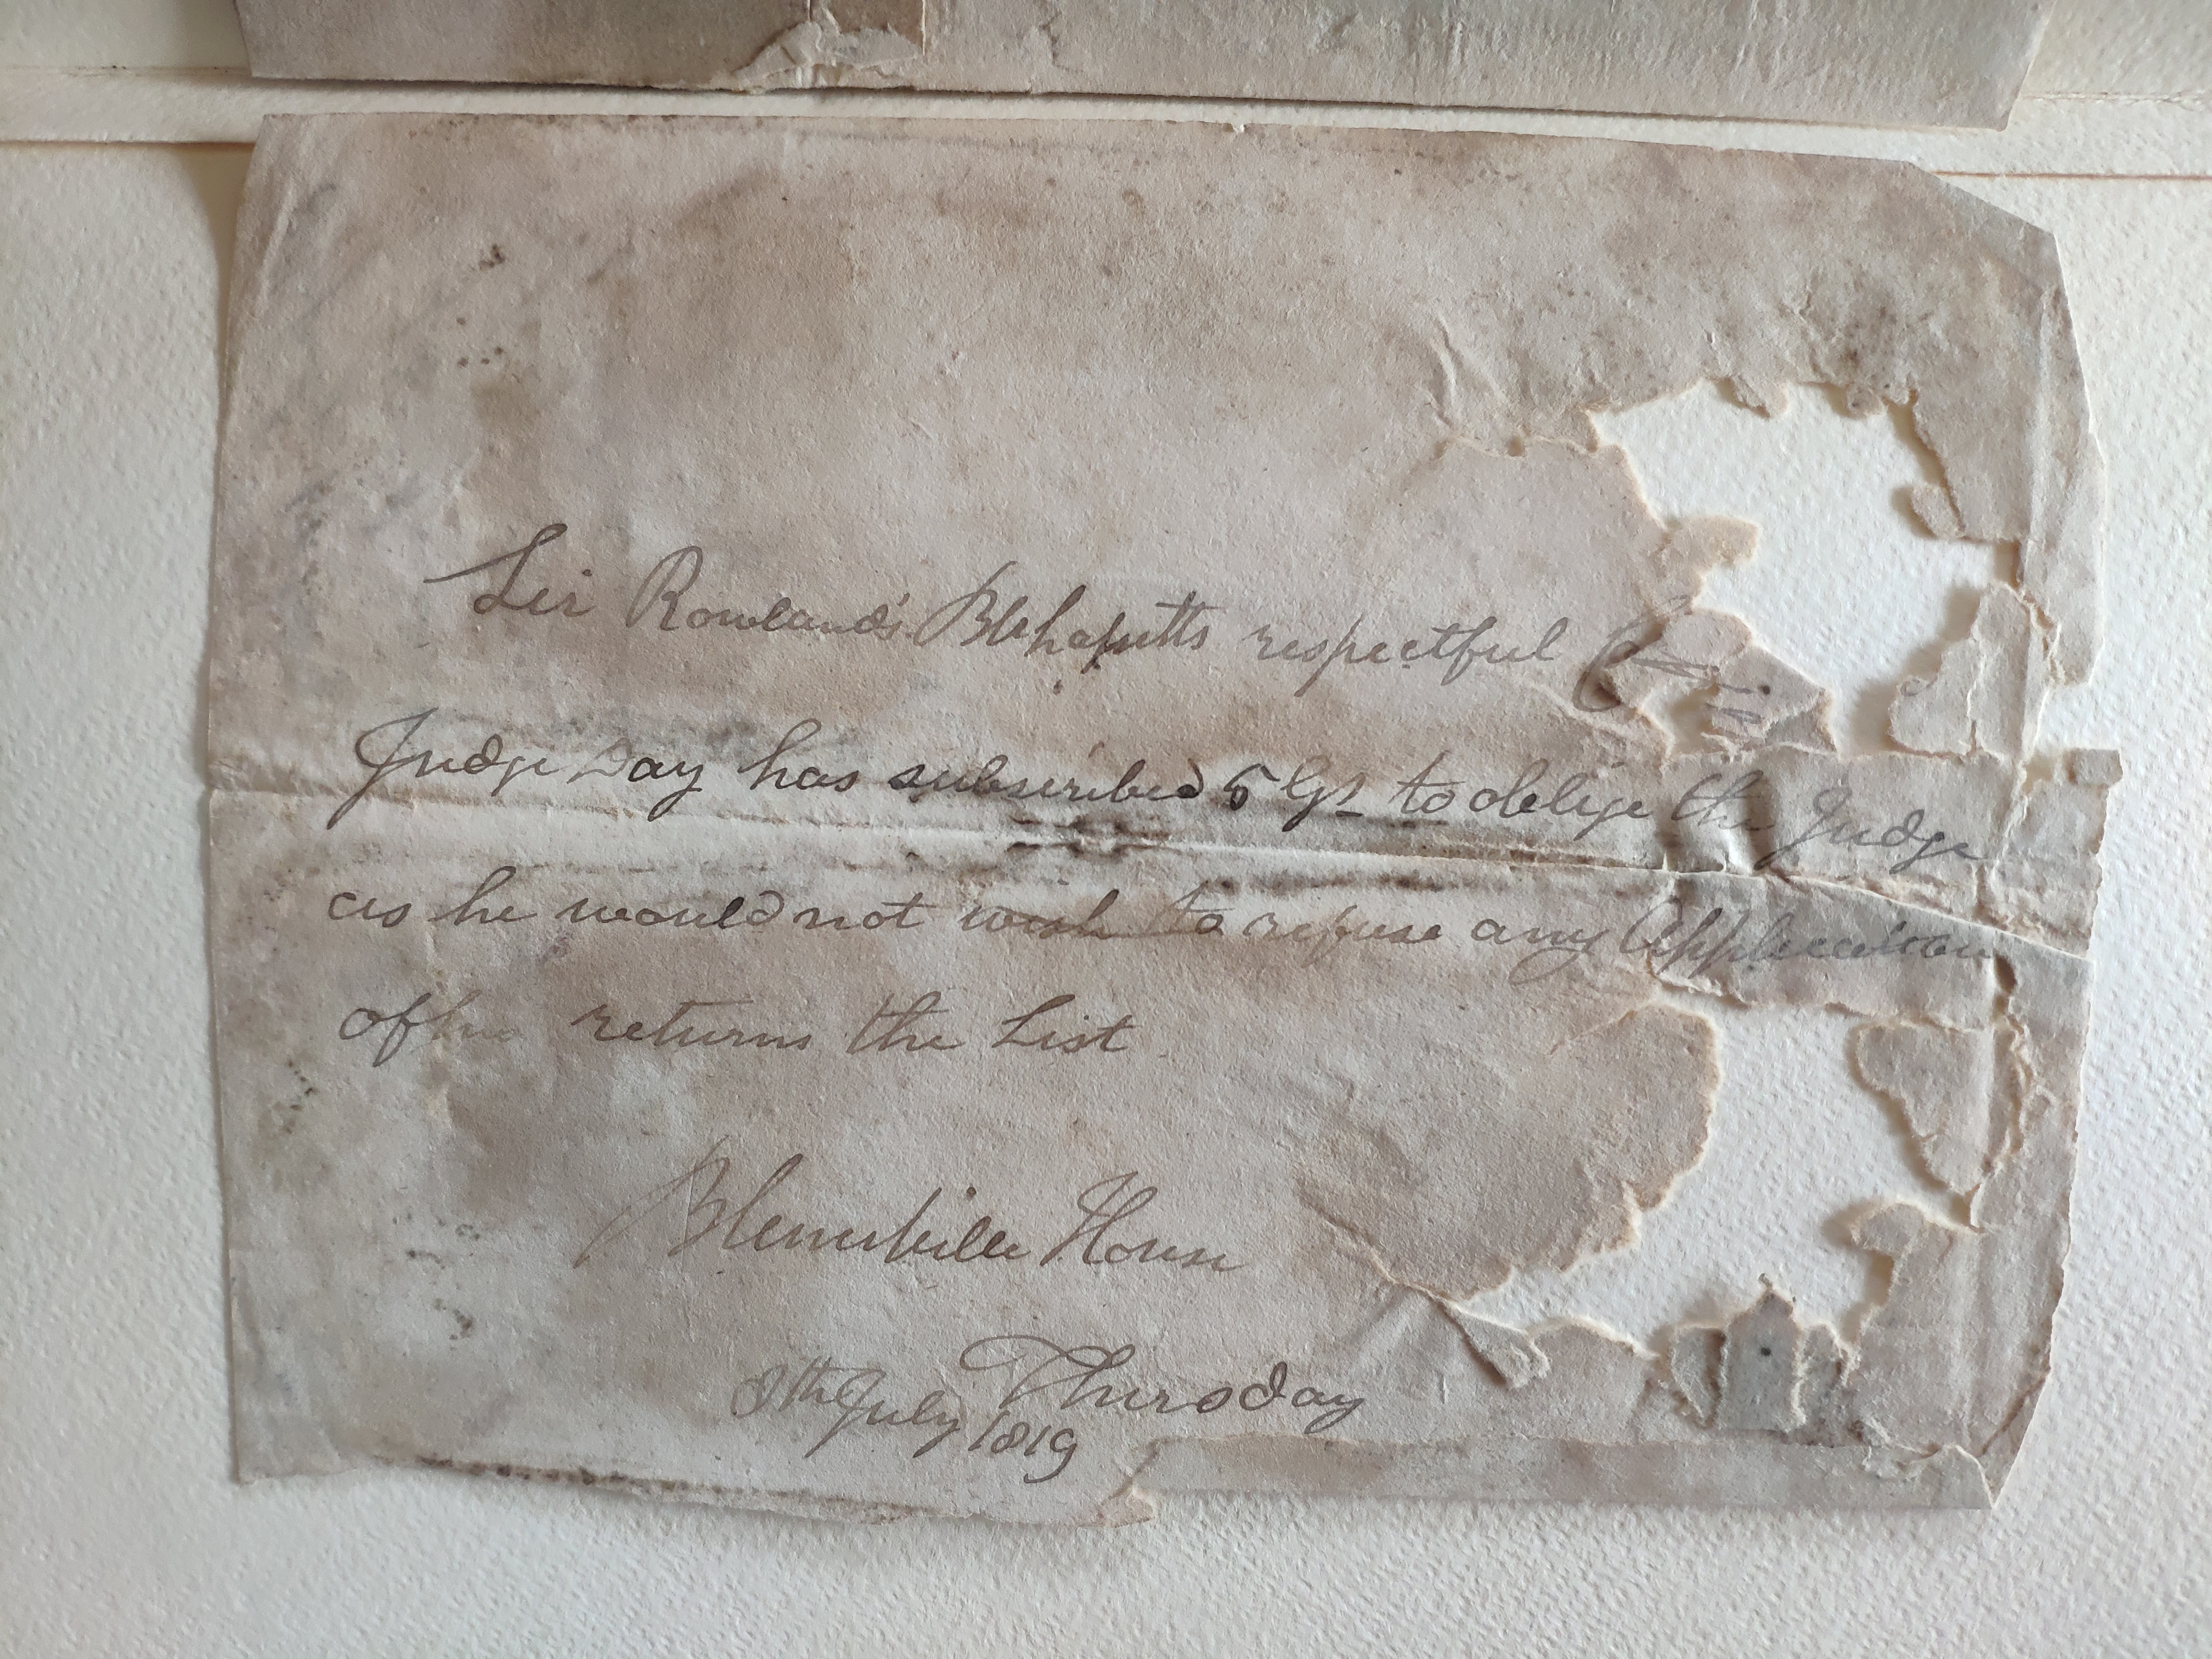 Sir Rowland's Blehafsetts respectful
Judge Day has subscribed 5 Gs to oblige the Judge
as he would not wish to refuse any Application
of his returns the List
Blennerville House
Thursday
8th July 1819